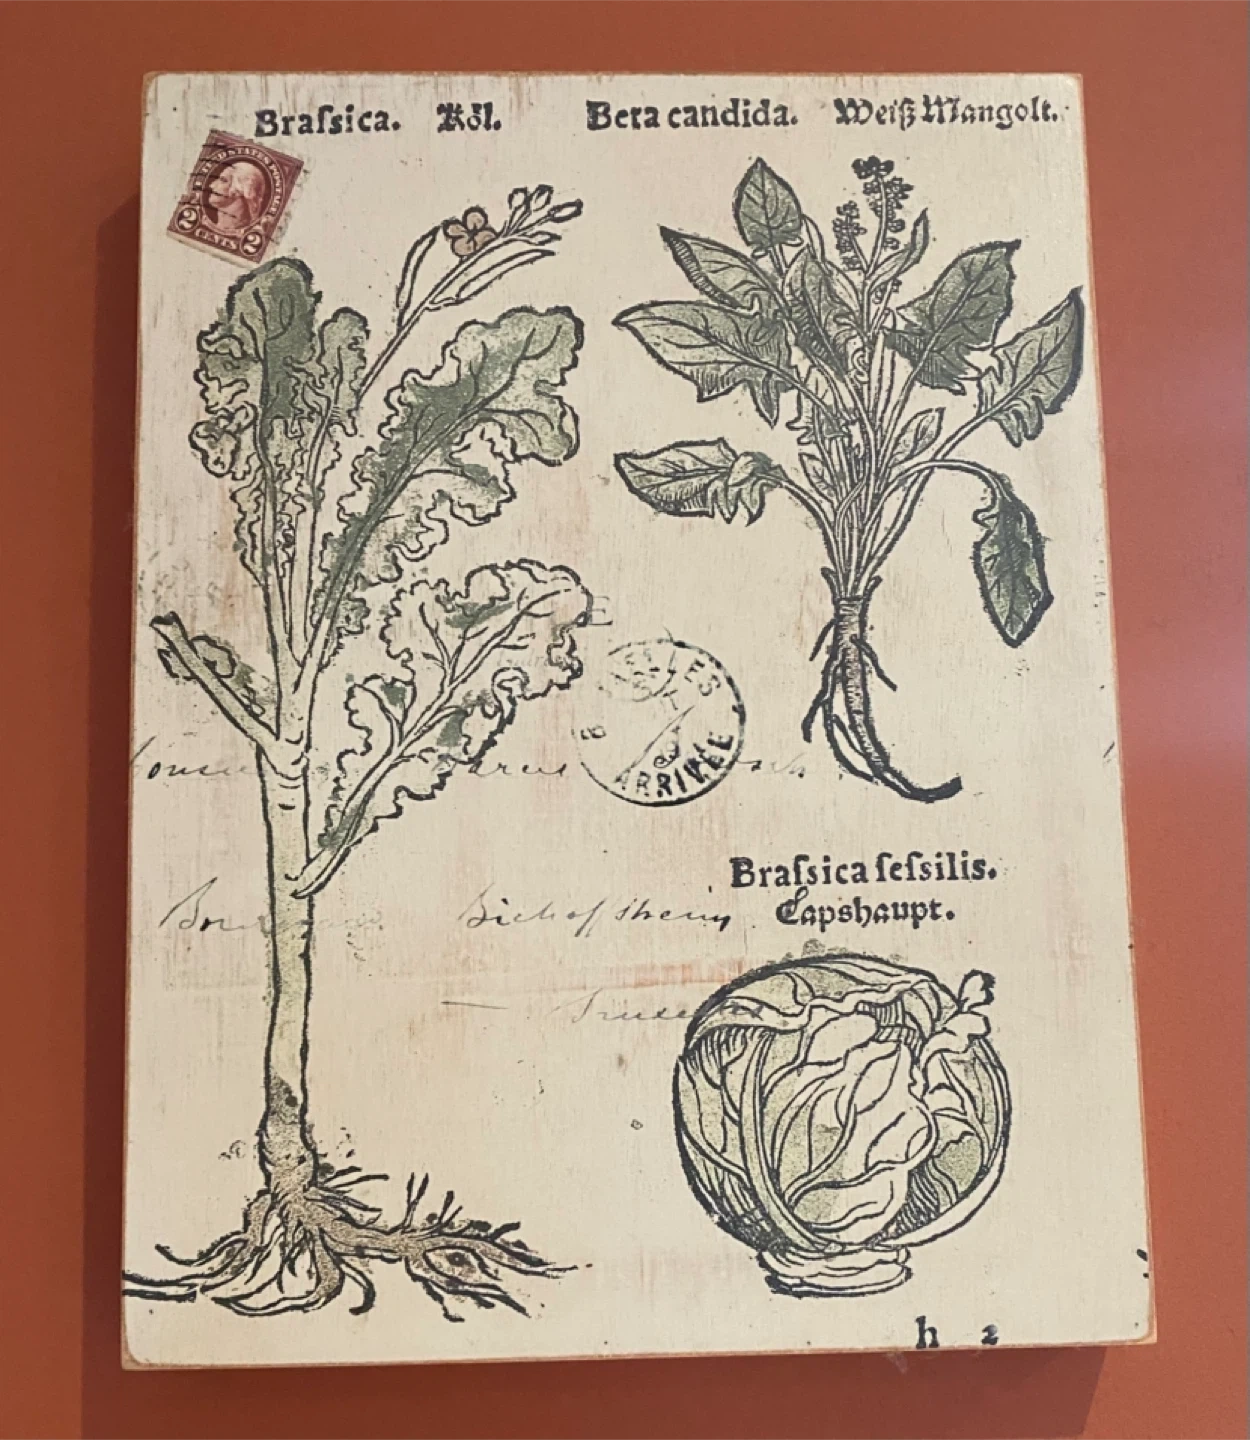 Braſsica. Köl. Beta candida. Weiß Mangolt.
UNITED STATES POSTAGE
2 CENTS 2
ARRIVÉE
Braſsica ſeſsilis.
Capshaupt.
Bischoffsheim
h 2